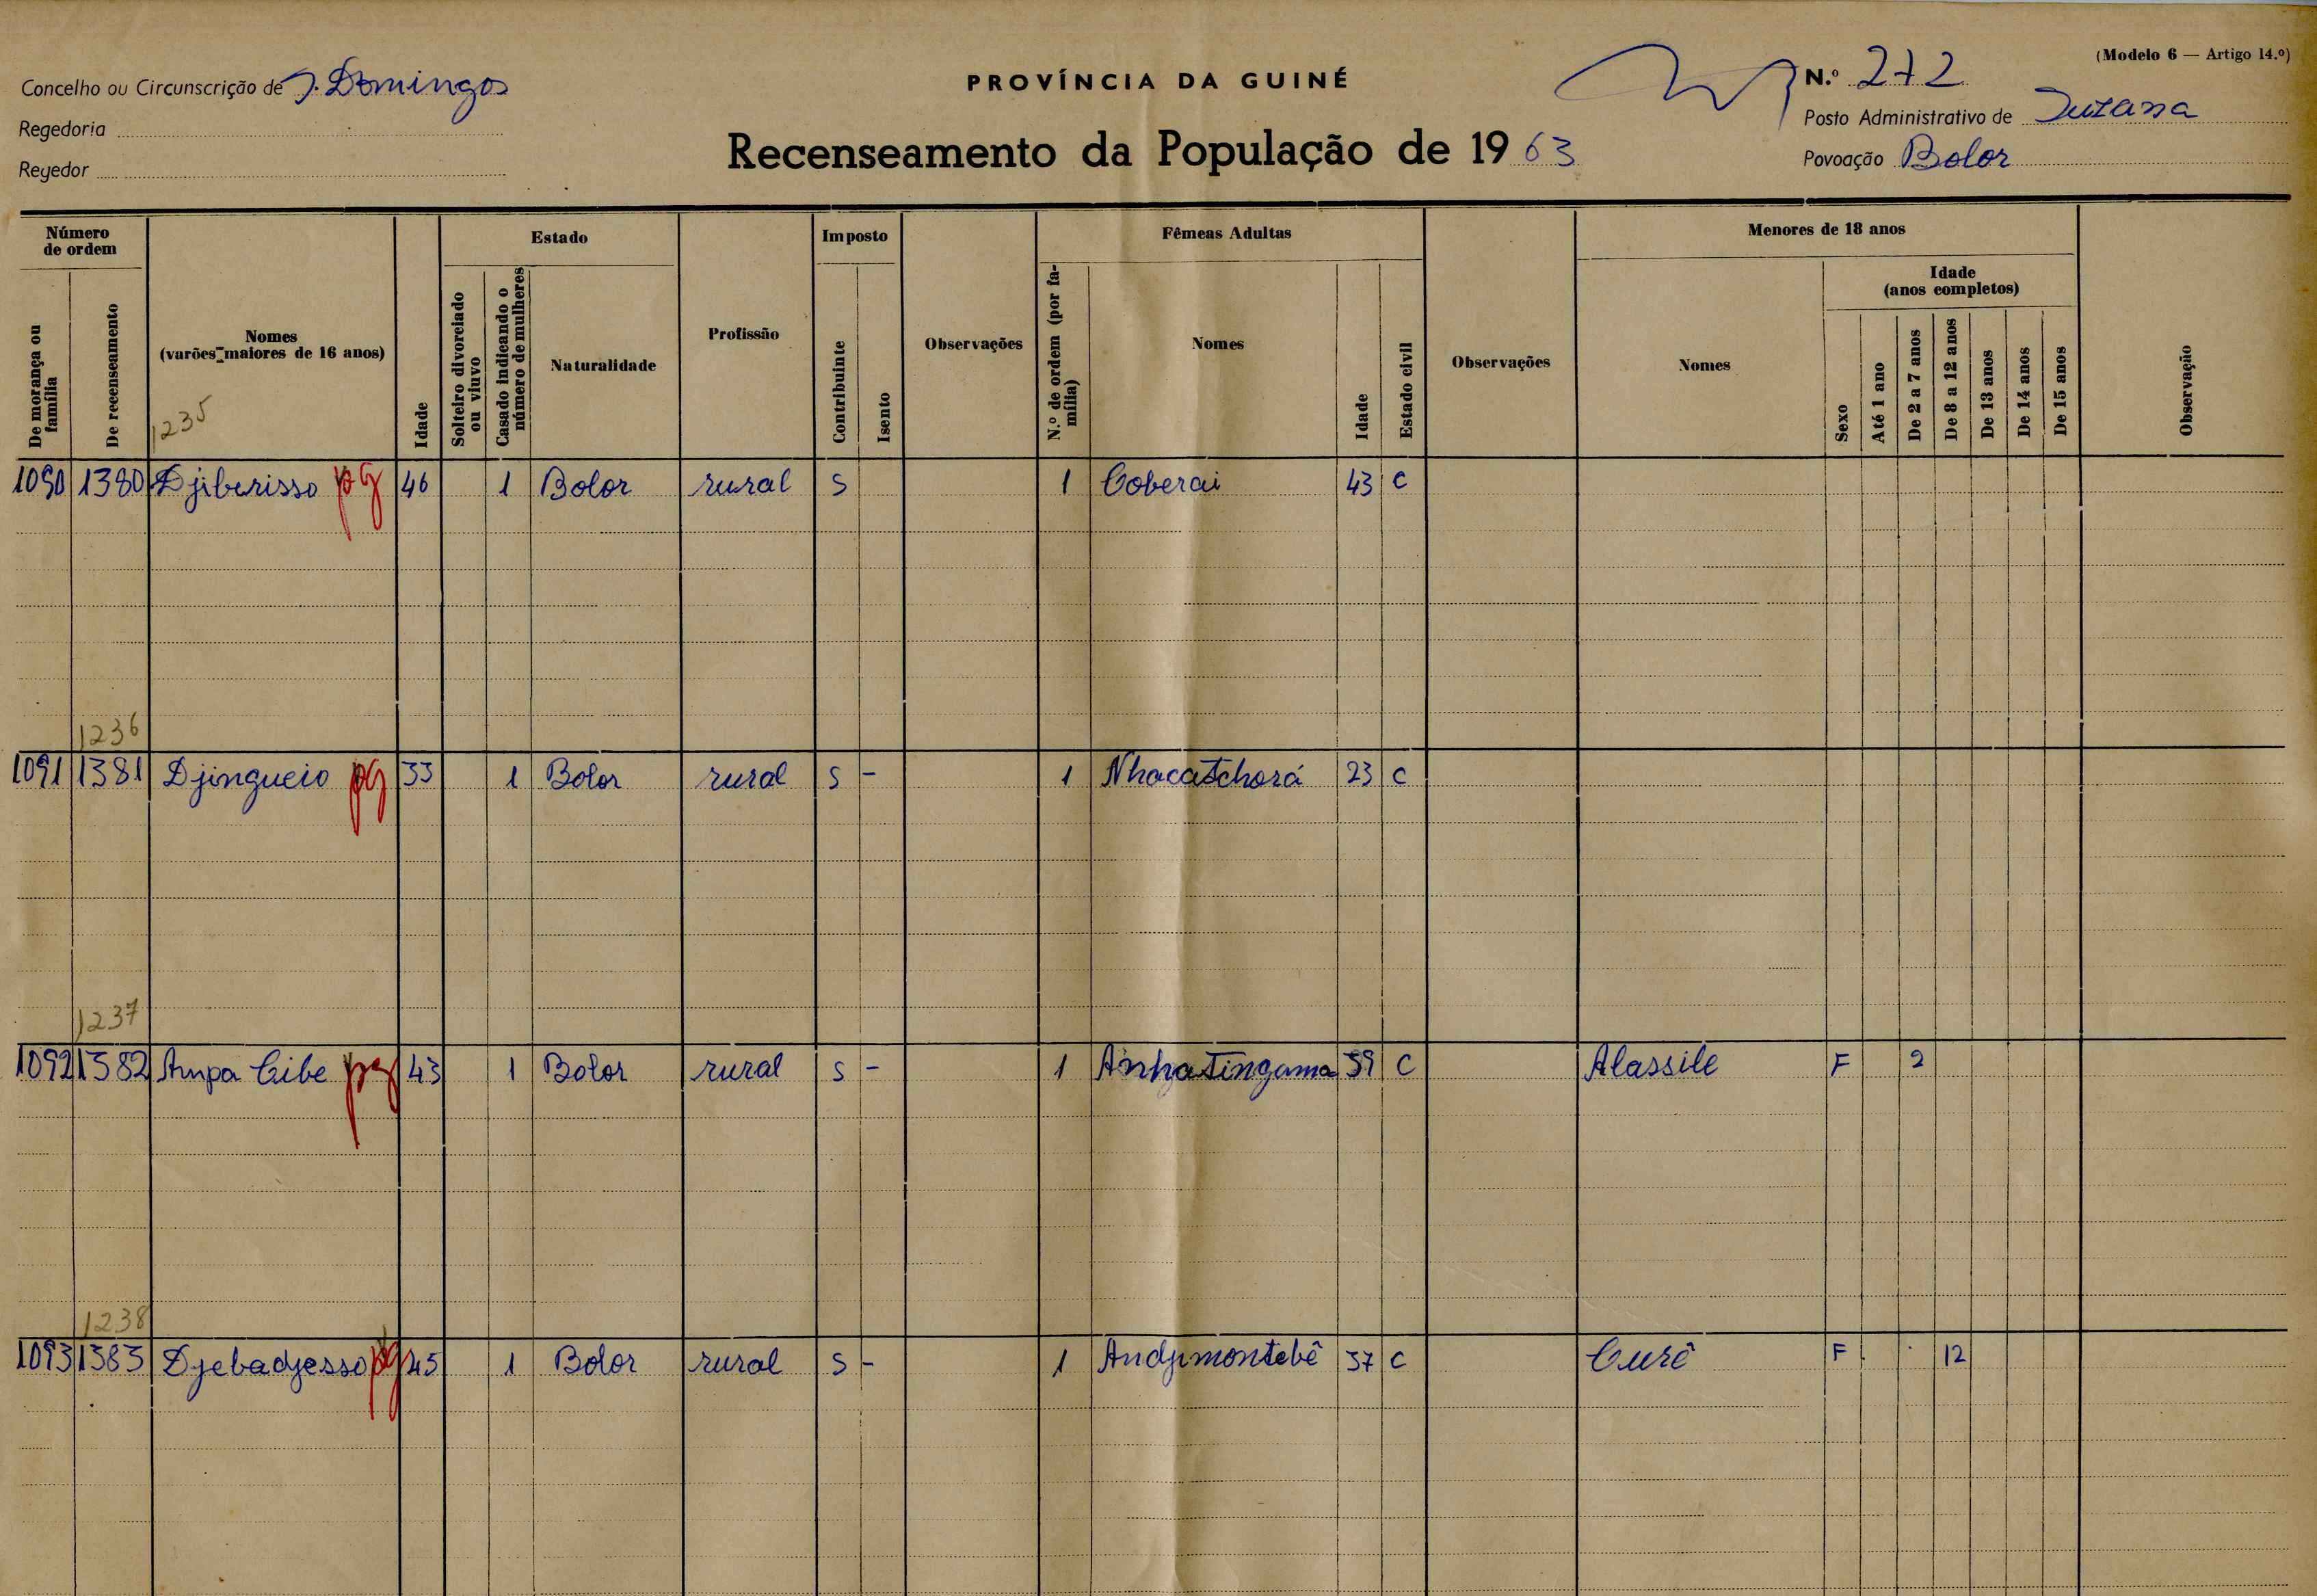 (Modelo 6 — Artigo 14.º)
Concelho ou Circunscrição de S. Domingos
PROVÍNCIA DA GUINÉ
N.º 272
Regedoria
Posto Administrativo de Suzana
Recenseamento da População de 1963
Regedor
Povoação Bolor
Número de ordem
De morança ou família
De recenseamento
Nomes
(varões maiores de 16 anos)
1235
Idade
Estado
Solteiro divorciado ou viuvo
Casado indicando o número de mulheres
Naturalidade
Profissão
Imposto
Contribuinte
Isento
Observações
Fêmeas Adultas
N.º de ordem (por família)
Nomes
Idade
Estado civil
Observações
Menores de 18 anos
Nomes
Sexo
Idade
(anos completos)
Até 1 ano
De 2 a 7 anos
De 8 a 12 anos
De 13 anos
De 14 anos
De 15 anos
Observação
1090 1380 Djiberisso pg 46 1 Bolor rural S 1 Coberai 43 C
1236
1091 1381 Djingueio pg 33 1 Bolor rural S - 1 Nhacatchorá 23 C
1237
1092 1382 Ampa Cibe pg 43 1 Bolor rural S - 1 Anhatingama 39 C Alassile F 2
1238
1093 1383 Djebadjesso pg 45 1 Bolor rural S - 1 Andjimontebê 37 C Curê F 12